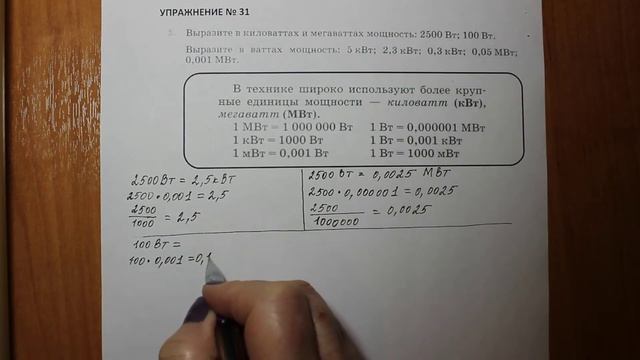 УПРАЖНЕНИЕ № 31
Выразите в киловаттах и мегаваттах мощность: 2500 Вт; 100 Вт.
Выразите в ваттах мощность: 5 кВт; 2,3 кВт; 0,3 кВт; 0,05 МВт;
0,001 МВт.
В технике широко используют более круп-
ные единицы мощности — киловатт (кВт),
мегаватт (МВт).
1 МВт = 1 000 000 Вт 1 Вт = 0,000001 МВт
1 кВт = 1000 Вт 1 Вт = 0,001 кВт
1 мВт = 0,001 Вт 1 Вт = 1000 мВт
2500 Вт = 2,5 кВт
2500 • 0,001 = 2,5
2500
1000
= 2,5
2500 Вт = 0,0025 МВт
2500 • 0,000001 = 0,0025
2500
1000000
= 0,0025
100 Вт =
100 • 0,001 = 0,1